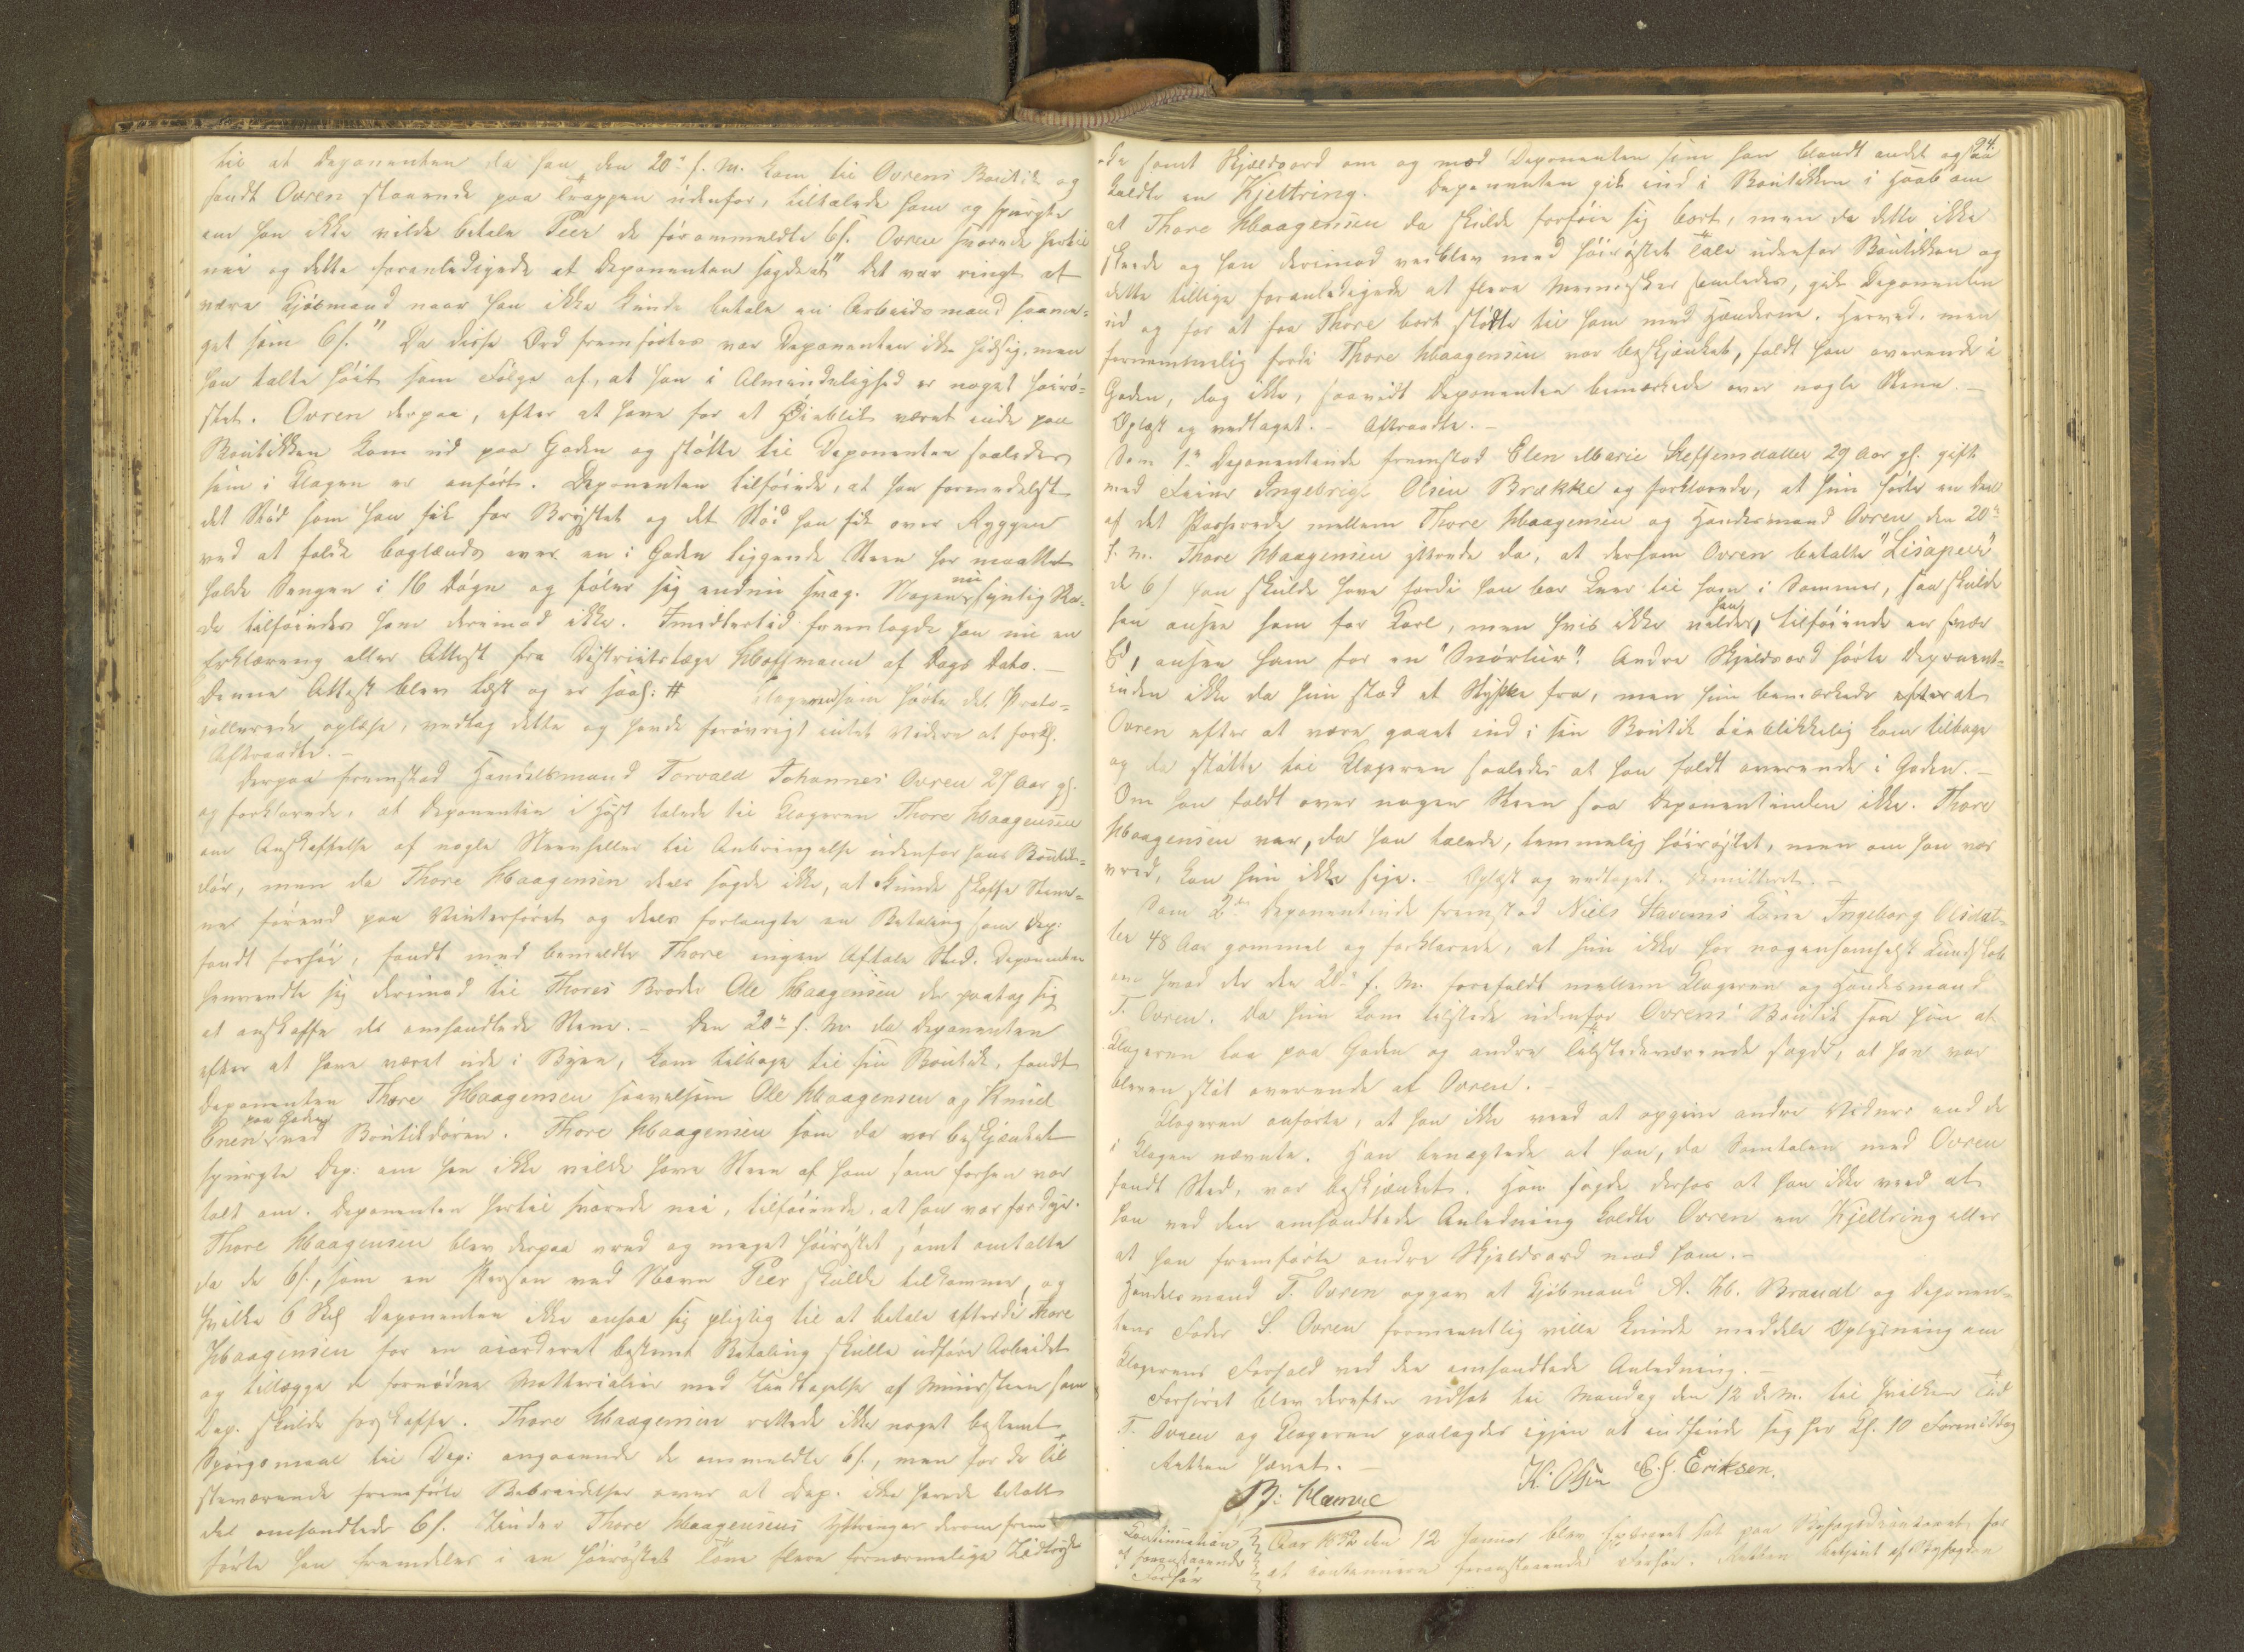 til at Deponenten da han den 20de f. M. kom til Ovrens Boutik og
fandt Ovren staaende paa Trappen udenfor, tiltalede ham og spurgte
om han ikke vilde betale Peer de førommeldte 6 s. Ovren svarede hertil
nei og dette foranledigede at Deponenten sagde at "Det var ringt at
være Kjøbmand naar han ikke kunde betale en Arbeidsmand saame-
get som 6 s." Da disse Ord fremførtes var Deponenten ikke hidsig, men
han talte høit som Følge af, at han i Almindelighed er noget høirø-
stet. Ovren derpaa, efter at have for et Øieblik været inde paa
Boutikken kom ud paa Gaden og stødte til Deponenten saaledes
som i Klagen er anført. Deponenten tilføiede, at han formedelst
det Stød som han fik for Brystet og det Stød han fik over Ryggen
ved at falde baglænds over en i Gaden liggende Steen har maattet
holde Sengen i 16 Døgn og føler sig endnu svag. Nogen nu synlig Ska-
de tilføiedes ham derimod ikke. Imidlertid fremlagde han nu en
Erklæring eller Attest fra Districtslæge Hoffmann af Dags Dato. —
Denne Attest blev læst og er saal: # Klageren som hørte det Proto-
collerede oplæse, vedtog dette og havde forøvrigt intet Videre at forkl.
Aftraadte. —
Derpaa fremstod Handelsmand Torvald Johannes Ovren 27 Aar gl.
og forklarede, at Deponenten i Høst talede til Klageren Thore Haagensen
om Anskaffelse af nogle Steenheller til Anbringelse udenfor hans Boutik-
dør, men da Thore Haagensen deels sagde ikke, at kunde skaffe Stene-
ne førend paa Vinterføret og deels forlangte en Betaling som Dep:
fandt forhøi, fandt med bemeldte Thore ingen Aftale Sted. Deponenten
henvendte sig derimod til Thores Broder Ole Haagensen der paatog sig
at anskaffe de omhandlede Stene. — Den 20de f. M. da Deponenten
efter at have været ude i Byen, kom tilbage til sin Boutik, fandt
Deponenten Thore Haagensen saavelsom Ole Haagensen og Knud
Enen paa Gaden ved Boutikdøren. Thore Haagensen som da var beskjænket
spurgte Dep: om han ikke vilde have Steen af ham som forhen var
talt om. Deponenten hertil svarede nei, tilføiende, at han var for dyr.
Thore Haagensen blev derpaa vred og meget høirøstet, samt omtalte
da de 6 s., som en Person ved Navn Peer skulde tilkomme, og
hvilke 6 Skl Deponenten ikke ansaa sig pligtig til at betale efterdi Thore
Haagensen for en accorderet bestemt Betaling skulle udføre Arbeidet
og tillægge de fornødne Matterialier med Undtagelse af Muursteen som
Dep. skulde forskaffe. Thore Haagensen rettede ikke noget bestemt
Spørgsmaal til Dep: angaaende de ommeldte 6 s., men for de Til-
stæværende fremførte Bebreidelser over at Dep. ikke havde betalt
de omhandlede 6 s. Under Thore Haagensens Yttringer derom frem
førte han fremdeles i en høirøstet Tone flere fornærmelige Udtryk
94.
de samt Skjældsord om og mod Deponenten som han blandt andet ogsaa
kaldte en Kjeltring. Deponenten gik ind i Boutikken i Haab om
at Thore Haagensen da skulde forføie sig bort, men da dette ikke
skeede og han derimod vedblev med høirøstet Tale udenfor Boutikken og
dette tillige foranledigede at flere Mennesker samledes, gik Deponenten
ud og for at faa Thore bort stødte til ham med Hænderne. Herved, men
fornemmelig fordi Thore Haagensen var beskjænket, faldt han overende i
Gaden, dog ikke, saavidt Deponenten bemærkede over nogle Stene. —
Oplæst og vedtaget. — Aftraadte. —
Som 1ste Deponentinde fremstod Elen Marie Steffensdatter 29 Aar gl. gift
med Feier Ingebrigt Olsen Brække og forklarede, at hun hørte en Deel
af det Passerede mellem Thore Haagensen og Handelsmand Ovren den 20de
f. M. Thore Haagensen yttrede da, at dersom Ovren betalte "Lisapeer"
de 6 s han skulde have fordi han bar Leer til ham i Sommer, saa skulde
han ansee ham for Karl, men hvis ikke han vilde, tilføiende en svær
Ed, ansee ham for en "Snørlur". Andre Skjeldsord hørte Deponent-
inden ikke da hun stod et Stykke fra, men hun bemærkede efter at
Ovren efter at være gaaet ind i sin Boutik øieblikkelig kom tilbage
og da stødte til Klageren saaledes at han faldt overende i Gaden. —
Om han faldt over nogen Steen saa Deponentinden ikke. Thore
Haagensen var, da han talede, temmelig høirøstet, men om han var
vred, kan hun ikke sige. — Oplæst og vedtaget. Dimitteret. —
Som 2den Deponentinde fremstod Niels Stavems Kone Ingeborg Olsdat-
ter 48 Aar gammel og forklarede, at hun ikke har nogensomhelst Kundskab
om hvad der den 20de f. M. forefaldt mellem Klageren og Handelsmand
T. Ovren. Da hun kom tilstede udenfor Ovrens Boutik saa hun at
Klageren laa paa Gaden og andre Tilstedeværende sagde, at han var
bleven stødt overende af Ovren. —
Klageren anførte, at han ikke veed at opgive andre Vidner end de
i Klagen nævnte. Han benægtede at han, da Samtalen med Ovren
fandt Sted, var beskjænket. Han sagde derhos at han ikke veed at
han ved den omhandlede Anledning kaldte Ovren en Kjeltring eller
at han fremførte andre Skjeldsord mod ham. —
Handelsmand T. Ovren opgav at Kjøbmand A. H. Brandt og Deponen-
tens Fader S. Ovren formeentlig ville kunde meddele Oplysning om
Klagerens Forhold ved den omhandlede Anledning. —
Forhøret blev derefter udsat til Mandag den 12 d. M. til hvilken Tid
T. Ovren og Klageren paalagdes igjen at indfinde sig her Kl. 10 Formiddag
Retten hævet. —
H. Olsen E. J. Eriksen.
Continuation
af foranstaaende
Forhør
Aar 1852 den 12 Januar blev Extraret sat paa Byfogedcontoret for
at continuere foranstaaende Forhør. Retten betjent af Byfogden